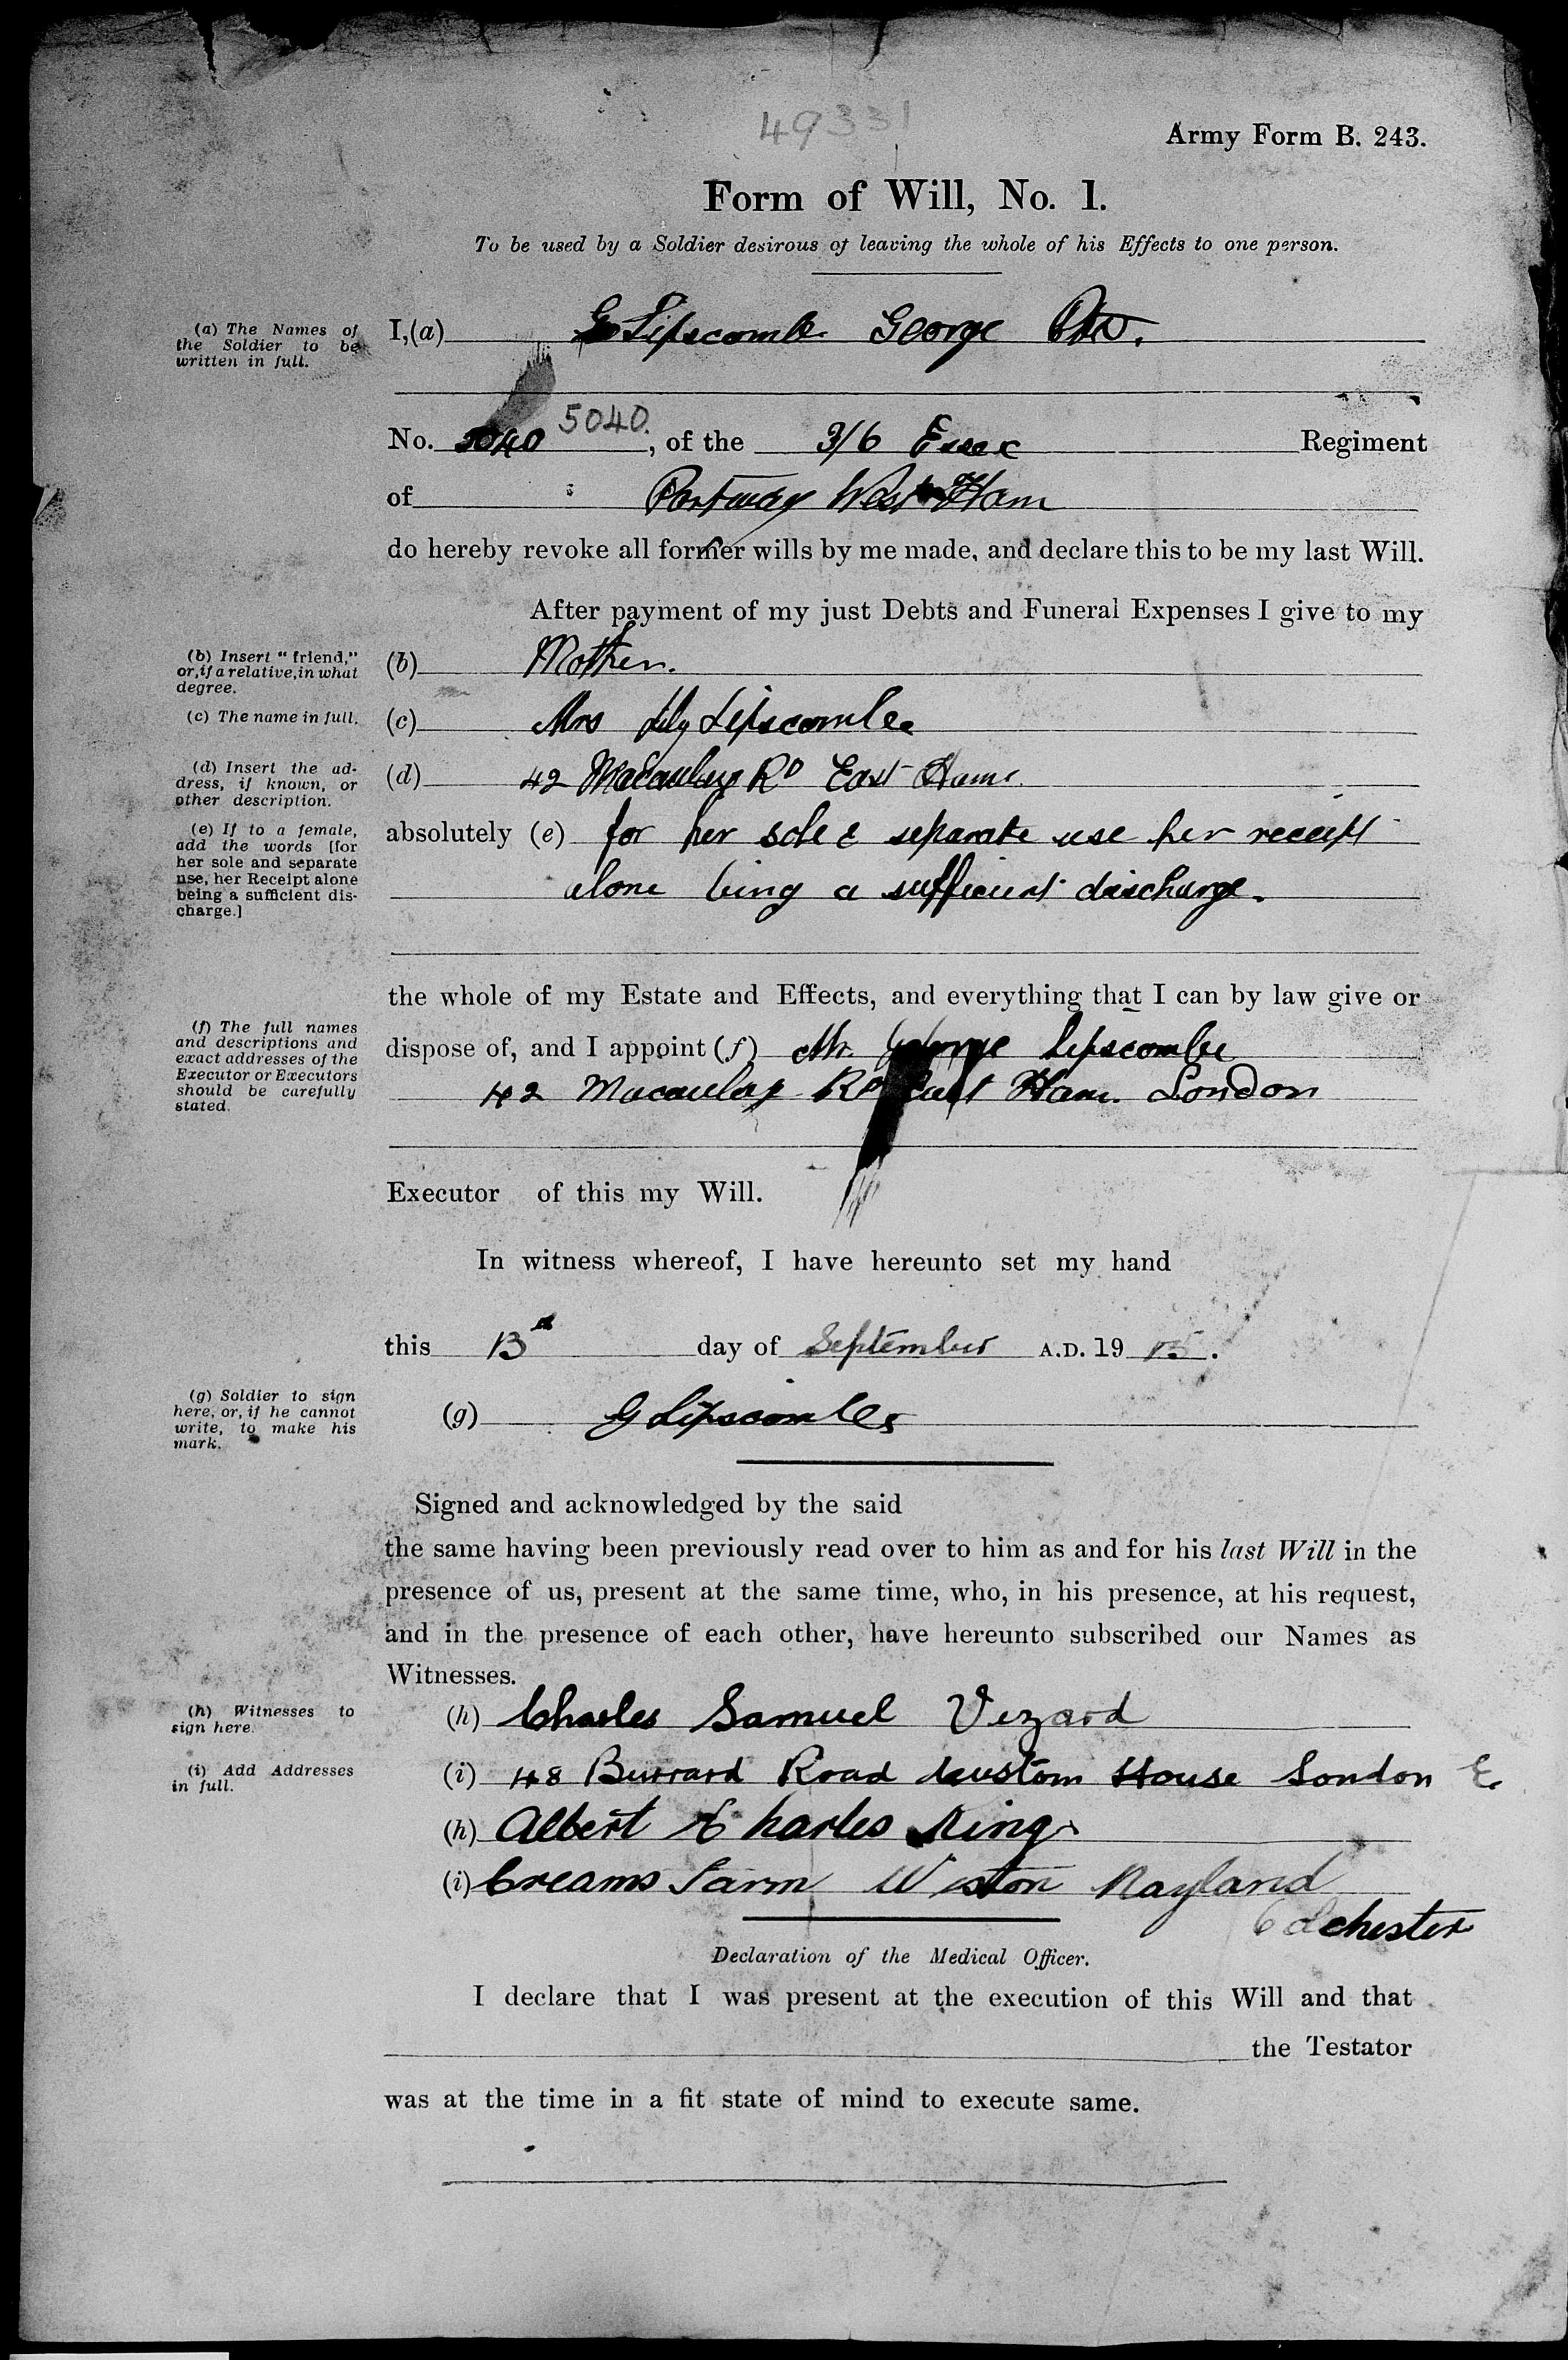 49331
Army Form B. 243.
Form of Will, No. 1.
To be used by a Soldier desirous of leaving the whole of his Effects to one person.
(a) The Names of
the Soldier to be
written in full.
I, (a) G Lipscombe George Pte.
No. 5040 5040. , of the 3/6 Essex Regiment
of Portway West Ham
do hereby revoke all former wills by me made, and declare this to be my last Will.
After payment of my just Debts and Funeral Expenses I give to my
(b) Insert "friend,"
or, if a relative, in what
degree.
(b) Mother.
(c) The name in full.
(c) Mrs Lily Lipscombe
(d) Insert the ad-
dress, if known, or
other description.
(d) 42 Macaulay Rd East Ham.
(e) If to a female,
add the words [for
her sole and separate
use, her Receipt alone
being a sufficient dis-
charge.]
absolutely (e) for her sole & separate use her receipt
alone being a sufficient discharge.
the whole of my Estate and Effects, and everything that I can by law give or
(f) The full names
and descriptions and
exact addresses of the
Executor or Executors
should be carefully
stated.
dispose of, and I appoint (f) Mr. George Lipscombe
42 Macaulay Rd East Ham. London
Executor of this my Will.
In witness whereof, I have hereunto set my hand
this 13th day of September A.D. 19 15.
(g) Soldier to sign
here, or, if he cannot
write, to make his
mark.
(g) G Lipscombe
Signed and acknowledged by the said
the same having been previously read over to him as and for his last Will in the
presence of us, present at the same time, who, in his presence, at his request,
and in the presence of each other, have hereunto subscribed our Names as
Witnesses.
(h) Witnesses to
sign here.
(h) Charles Samuel Vizard
(i) Add Addresses
in full.
(i) 48 Burrard Road Custom House London E.
(h) Albert Charles King
(i) Creams Farm Wiston Nayland
Colchester
Declaration of the Medical Officer.
I declare that I was present at the execution of this Will and that
the Testator
was at the time in a fit state of mind to execute same.